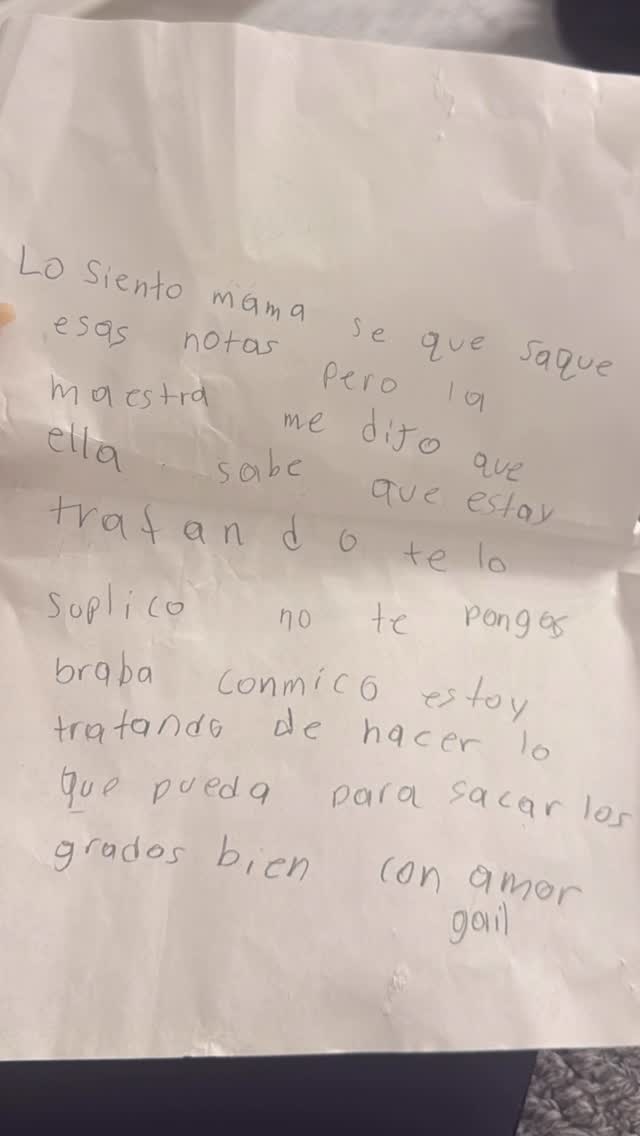 Lo siento mama se que saque
esas notas pero la
maestra me dijo que
ella sabe que estay
tratando te lo
suplico no te pongas
braba conmico estoy
tratando de hacer lo
que pueda para sacar los
grados bien con amor
gail